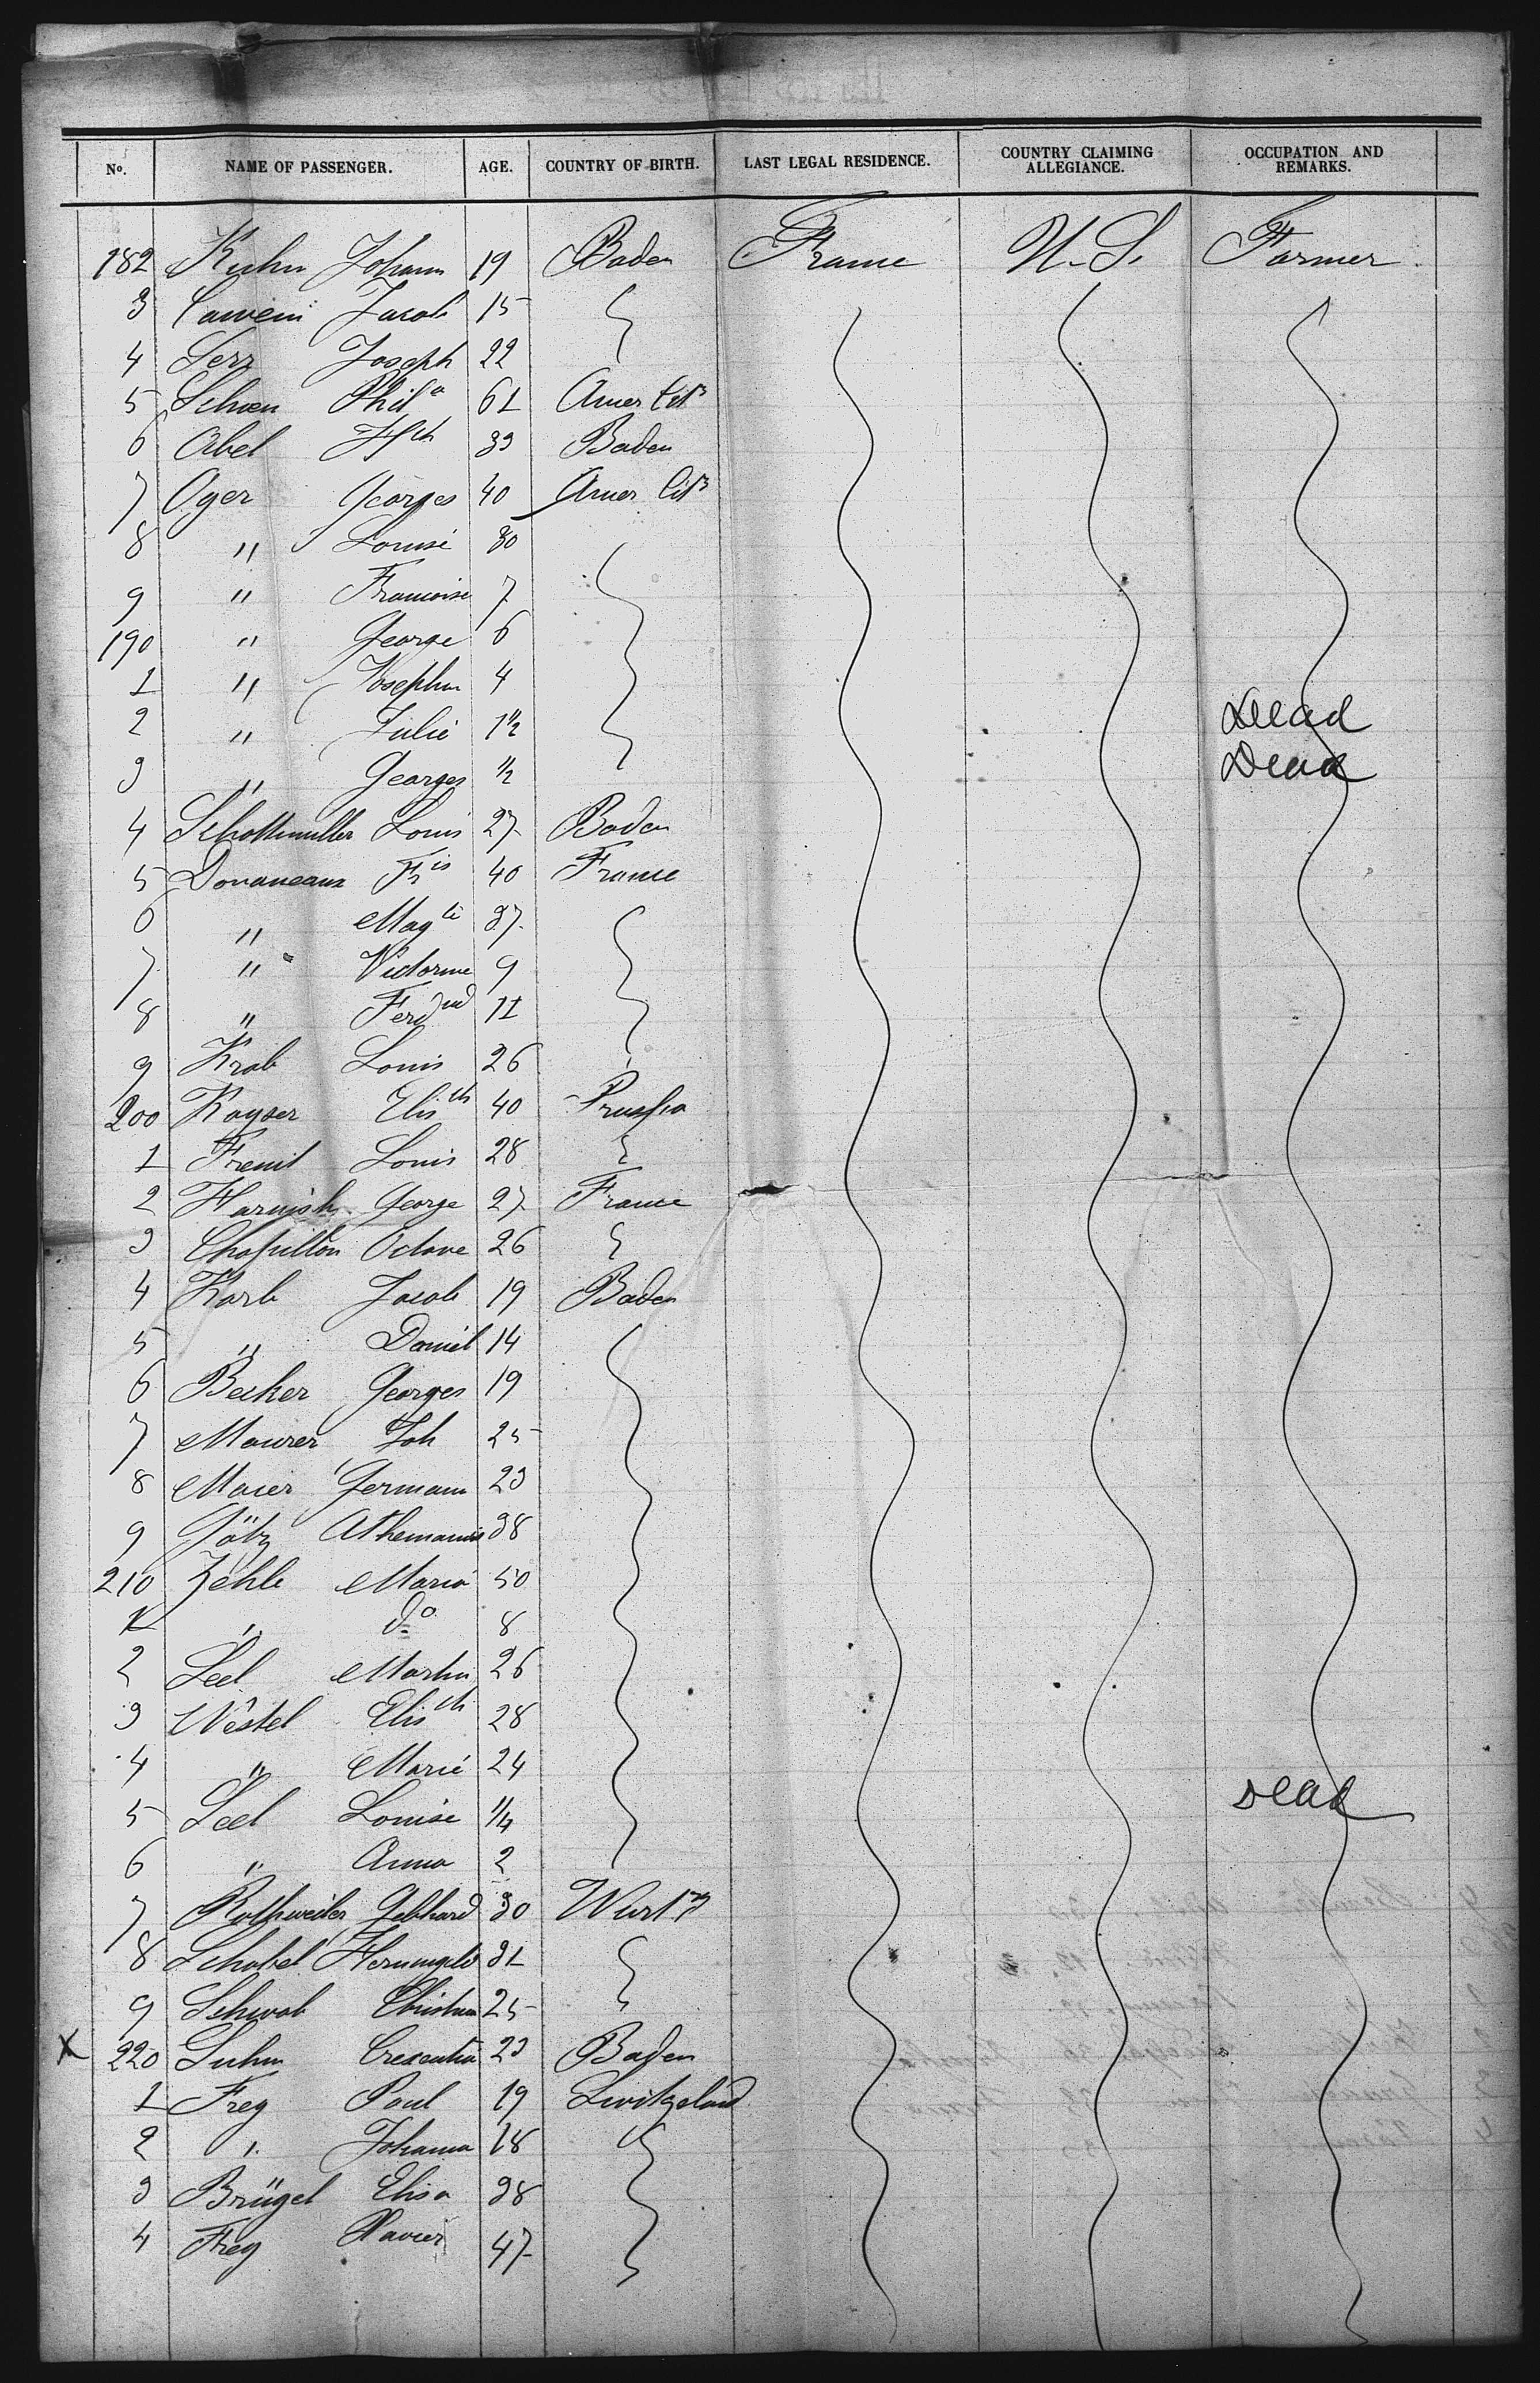 No. NAME OF PASSENGER. AGE. COUNTRY OF BIRTH. LAST LEGAL RESIDENCE. COUNTRY CLAIMING ALLEGIANCE. OCCUPATION AND REMARKS.
182 Kuhn Johann 19 Baden France U.S. Farmer
3 Cawein Jacob 15
4 Serr Joseph 22
5 Schoen Phila 61 Amer Citz
6 Abel Hch 33 Baden
7 Oger Georges 40 Amer Citz
8 " Louise 30
9 " Francoise 7
190 " George 6
1 " Josephin 4
2 " Julie 1½ Dead
3 " Georges ½ Dead
4 Schottmuller Louis 27 Baden
5 Donaneaux Frs 40 France
6 " Magte 37
7 " Victorine 9
8 " Ferdnd 11
9 Krab Louis 26
200 Kayser Elisth 40 Prussia
1 Louis 28
2 Harnish George 27 France
3 Chapillon Octave 26
4 Karb Jacob 19 Baden
5 " Daniel 14
6 Becker Georges 19
7 Maurer Joh 25
8 Maier Germann 23
9 Götz 38
210 Zehle Maria 50
1 " do 8
2 Seel Martin 26
3 Westel Elisth 28
4 " Marie 24
5 Seel Louise ¼ Dead
6 " Anna 2
7 Rothweiler Gebhard 30 Wurtg
8 Schobel 31
9 Schwab Christian 25
X 220 Suhm Crescentia 23 Baden
1 Frey Paul 19 Switzeland
2 " Johanna 18
3 Brügel Elisa 38
4 Frey Xavier 47